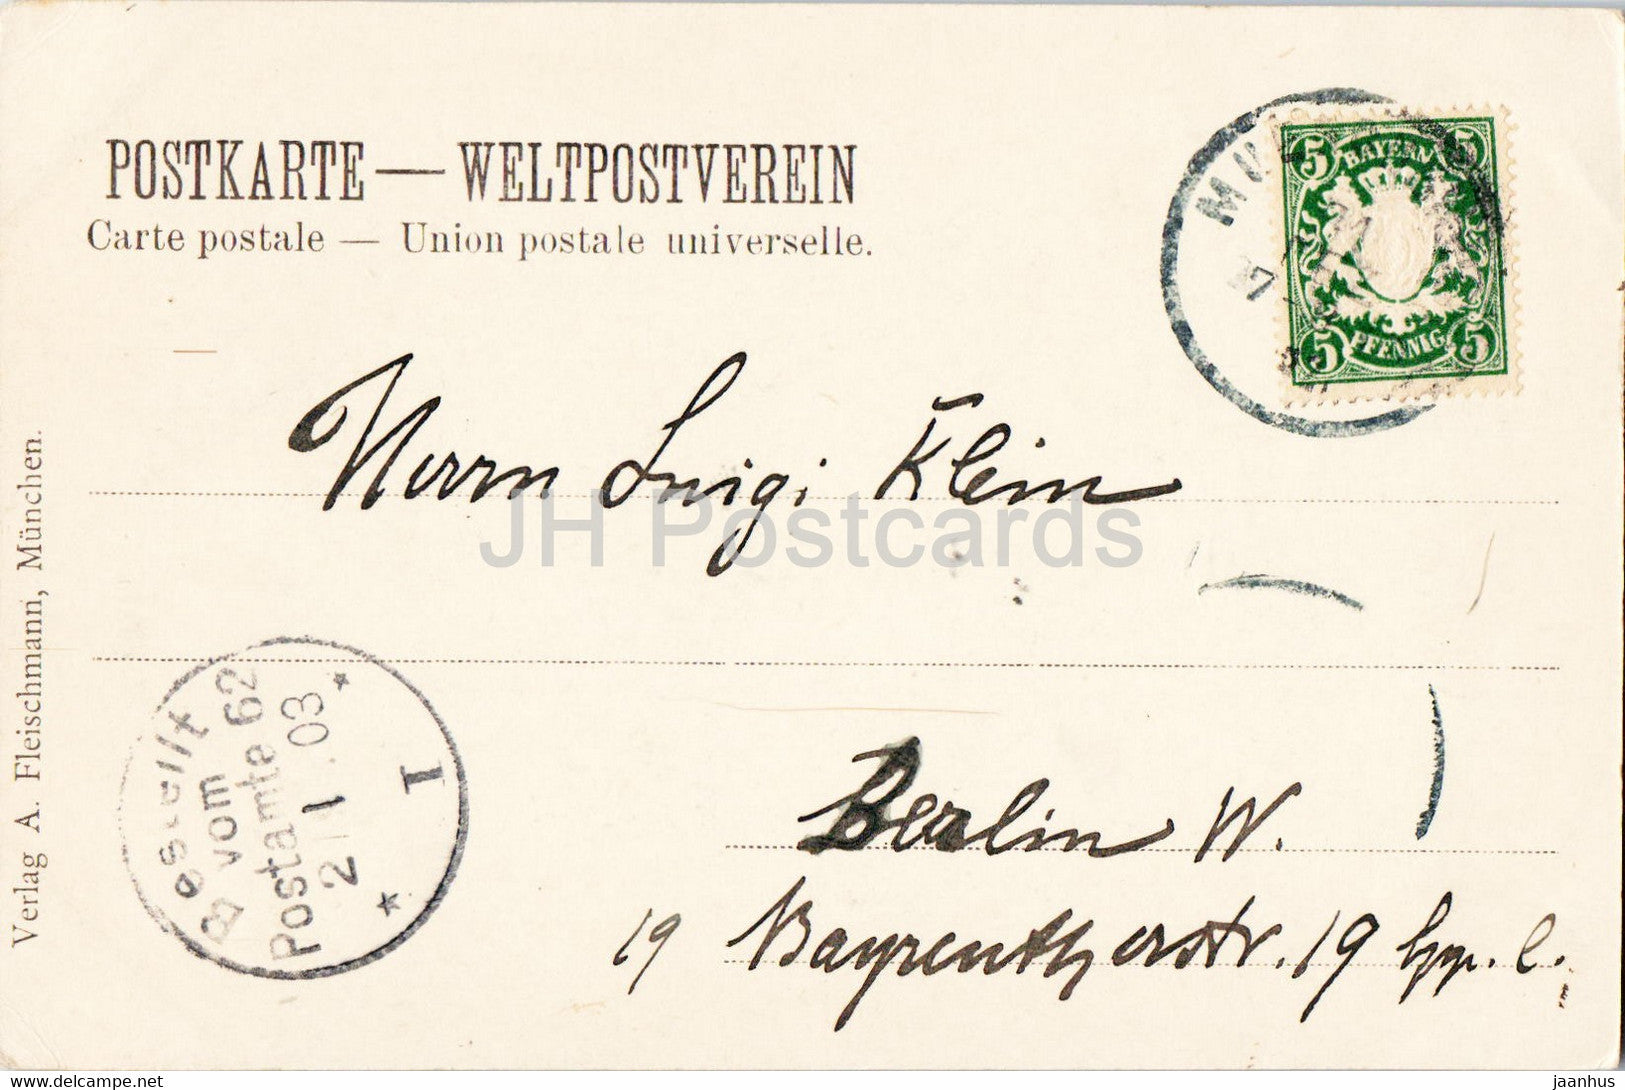 POSTKARTE — WELTPOSTVEREIN
Carte postale — Union postale universelle.
5 BAYERN 5
5 PFENNIG 5
Herrn Luigi Klein
JH Postcards
Bestellt
vom
Postamte 62
2 1 03
I
Berlin W.
19 Bayreutherstr. 19
Verlag A. Fleischmann, München.
https://www.delcampe.net
jaanhus